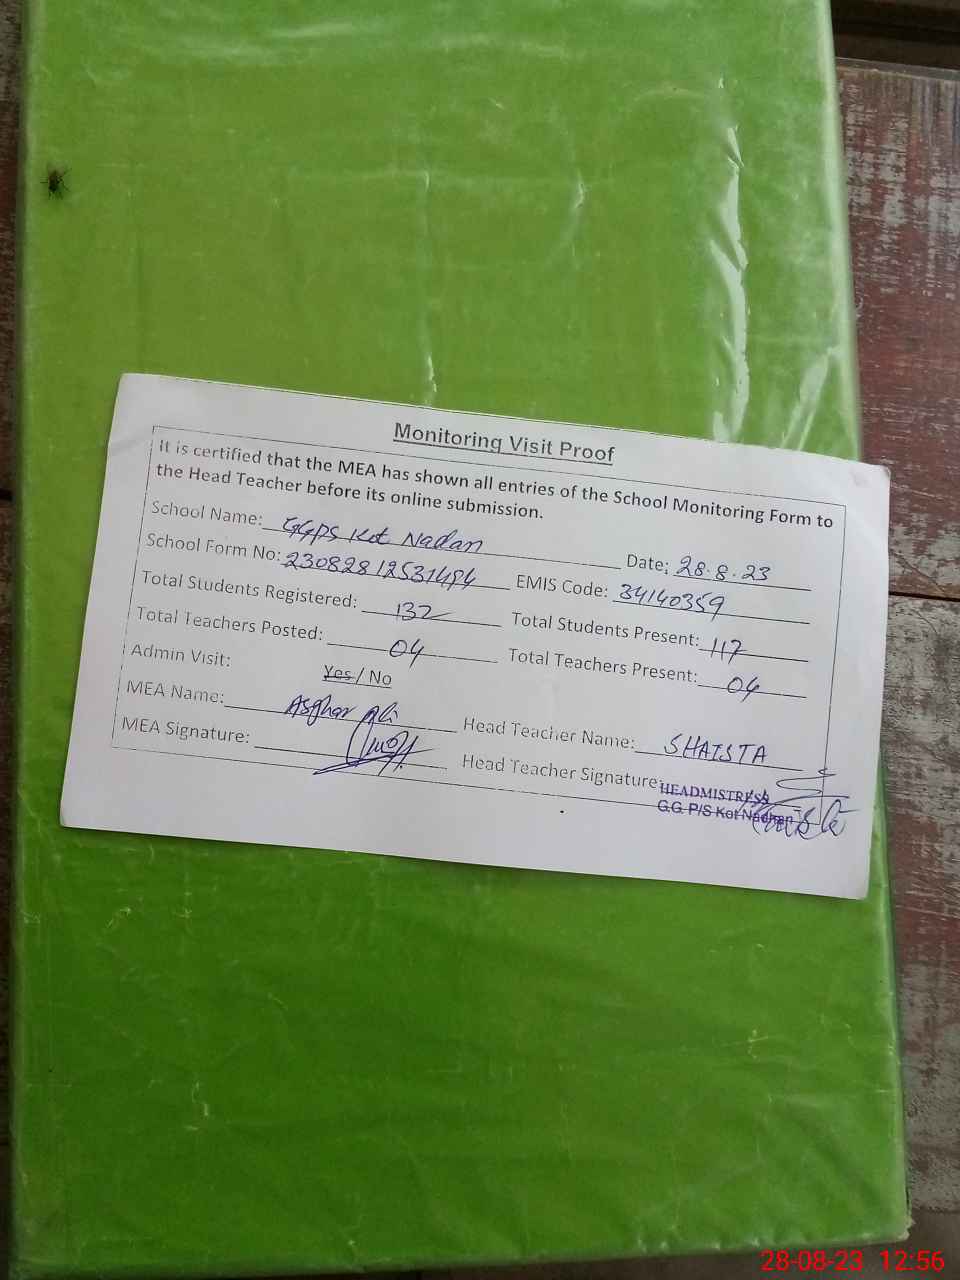 Monitoring Visit Proof
It is certified that the MEA has shown all entries of the School Monitoring Form to
the Head Teacher before its online submission.
School Name: GGPS Kot Nadan Date: 28.8.23
School Form No: 23082812531494 EMIS Code: 34140359
Total Students Registered: 132 Total Students Present: 117
Total Teachers Posted: 04 Total Teachers Present: 04
Admin Visit: Yes / No
MEA Name: Asghar Ali Head Teacher Name: SHAISTA
MEA Signature: Head Teacher Signature:
HEADMISTRESS
G.G. P/S Kot Nadhan
28-08-23 12:56